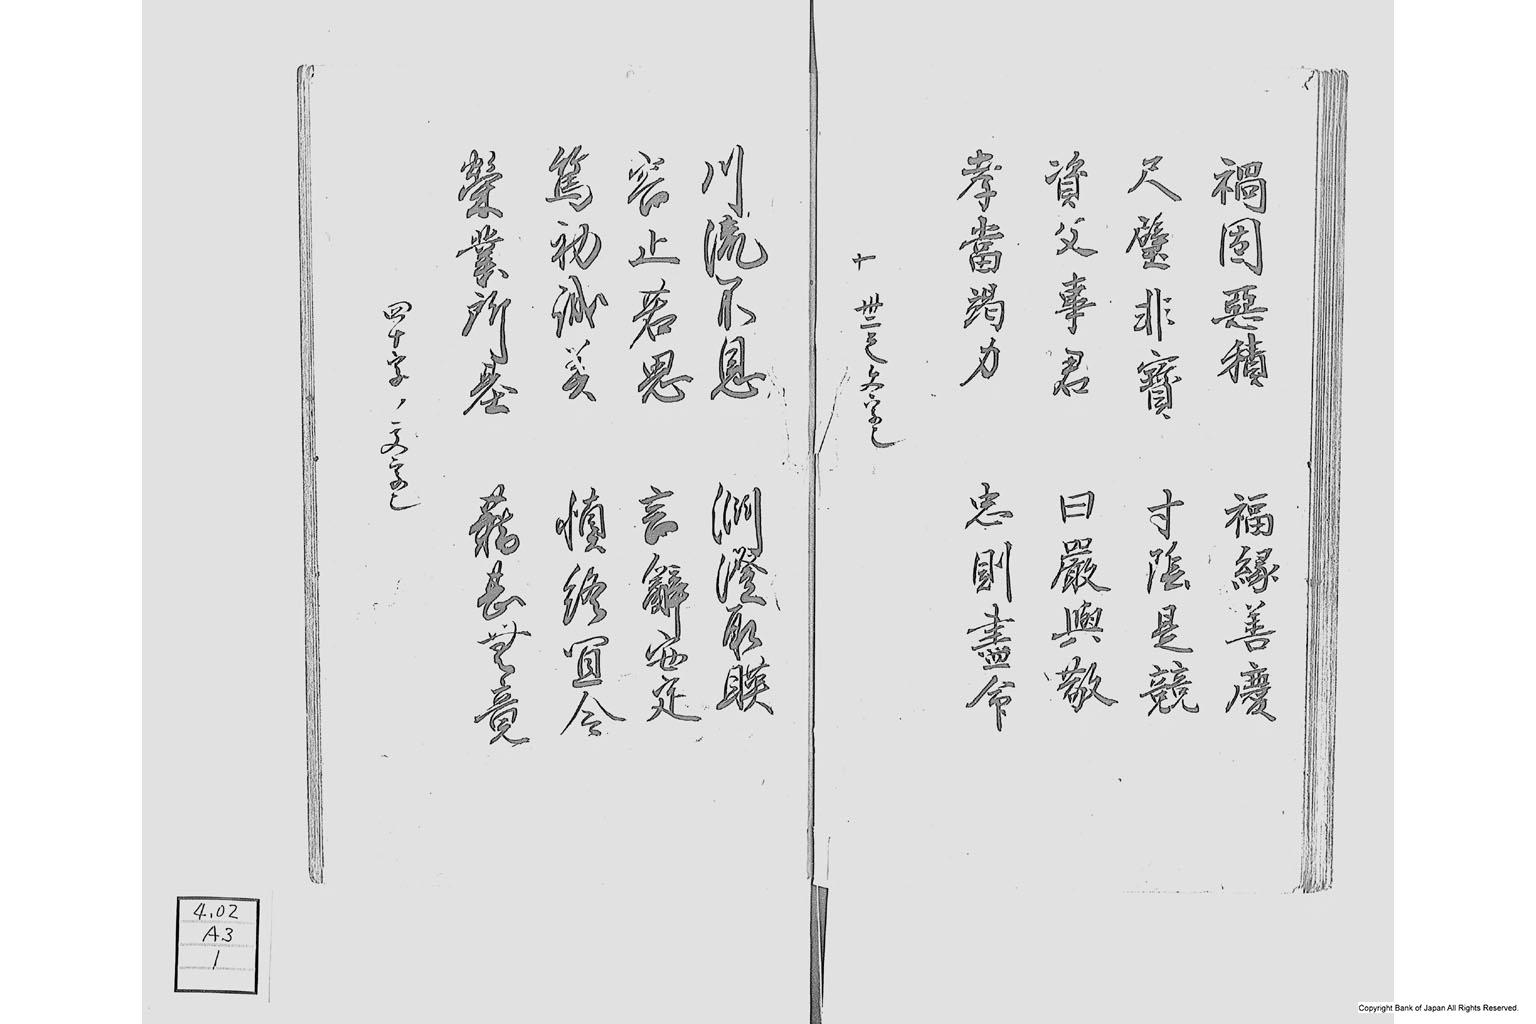 禍因惡積 福縁善慶
尺璧非寶 寸陰是競
資父事君 曰嚴與敬
孝當竭力 忠則盡命
十 卅二
川流不息 淵澄取映
容止若思 言辭安定
篤初誠美 慎終宜令
榮業所基 藉甚無竟
四十字ノ文字
4.02
A3
1
Copyright Bank of Japan All Rights Reserved.